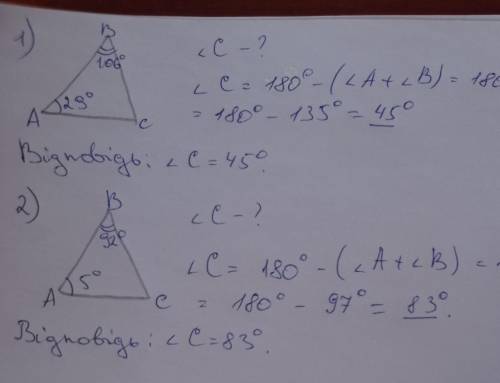 1)
B
106°
29°
A
C
∠C - ?
∠C = 180° - (∠A + ∠B) = 180
= 180° - 135° = 45°
Відповідь: ∠C = 45°.
2)
B
92°
5°
A
C
∠C - ?
∠C = 180° - (∠A + ∠B) =
= 180° - 97° = 83°.
Відповідь: ∠C = 83°.